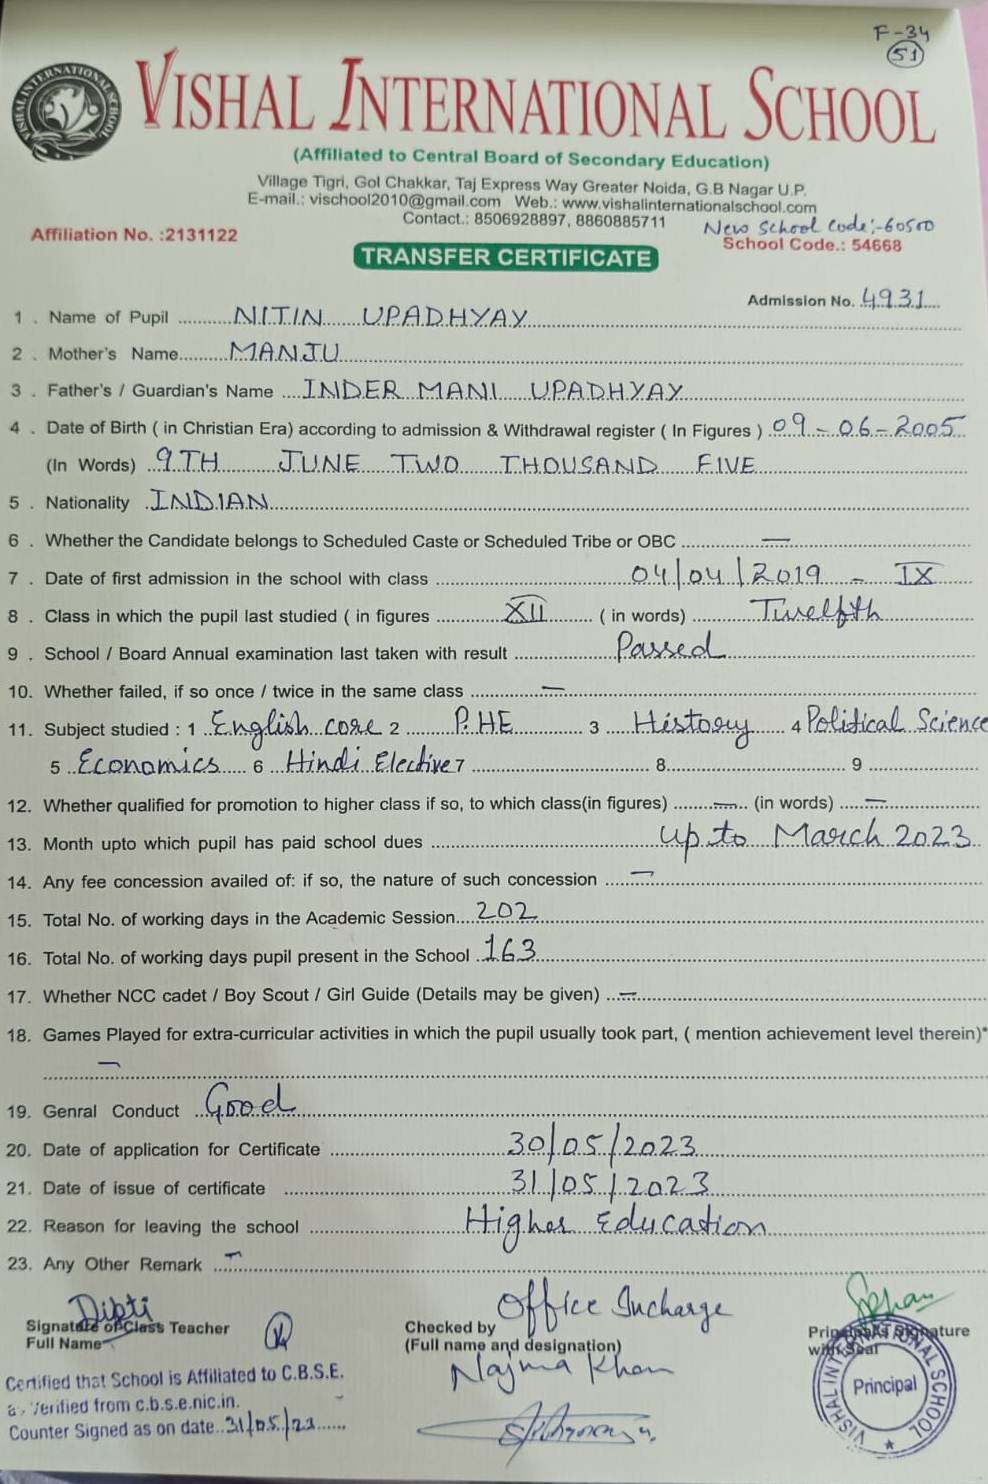 F-34
51
VISHAL INTERNATIONAL SCHOOL
(Affiliated to Central Board of Secondary Education)
Village Tigri, Gol Chakkar, Taj Express Way Greater Noida, G.B Nagar U.P.
E-mail.: vischool2010@gmail.com Web.: www.vishalinternationalschool.com
Contact.: 8506928897, 8860885711
New School Code:-60500
Affiliation No. :2131122 School Code.: 54668
TRANSFER CERTIFICATE
Admission No. 4931
1 . Name of Pupil NITIN UPADHYAY
2 . Mother's Name MANJU
3 . Father's / Guardian's Name INDER MANI UPADHYAY
4 . Date of Birth ( in Christian Era) according to admission & Withdrawal register ( In Figures ) 09-06-2005
(In Words) 9TH JUNE TWO THOUSAND FIVE
5 . Nationality INDIAN
6 . Whether the Candidate belongs to Scheduled Caste or Scheduled Tribe or OBC —
7 . Date of first admission in the school with class 04/04/2019 - IX
8 . Class in which the pupil last studied ( in figures XII ( in words) Twelfth
9 . School / Board Annual examination last taken with result Passed
10. Whether failed, if so once / twice in the same class —
11. Subject studied : 1 English core 2 P.HE 3 History 4 Political Science
5 Economics 6 Hindi Elective 7 8 9
12. Whether qualified for promotion to higher class if so, to which class(in figures) — (in words) —
13. Month upto which pupil has paid school dues up to March 2023
14. Any fee concession availed of: if so, the nature of such concession —
15. Total No. of working days in the Academic Session 202
16. Total No. of working days pupil present in the School 163
17. Whether NCC cadet / Boy Scout / Girl Guide (Details may be given) —
18. Games Played for extra-curricular activities in which the pupil usually took part, ( mention achievement level therein)*
—
19. Genral Conduct Good
20. Date of application for Certificate 30/05/2023
21. Date of issue of certificate 31/05/2023
22. Reason for leaving the school Higher Education
23. Any Other Remark —
Dipti Office Incharge
Signature of Class Teacher Checked by Principal's Signature
Full Name (Full name and designation) with Seal
Najma Khan
Certified that School is Affiliated to C.B.S.E.
as Verified from c.b.s.e.nic.in.
Counter Signed as on date 31/05/23
VISHAL INTERNATIONAL SCHOOL
Principal